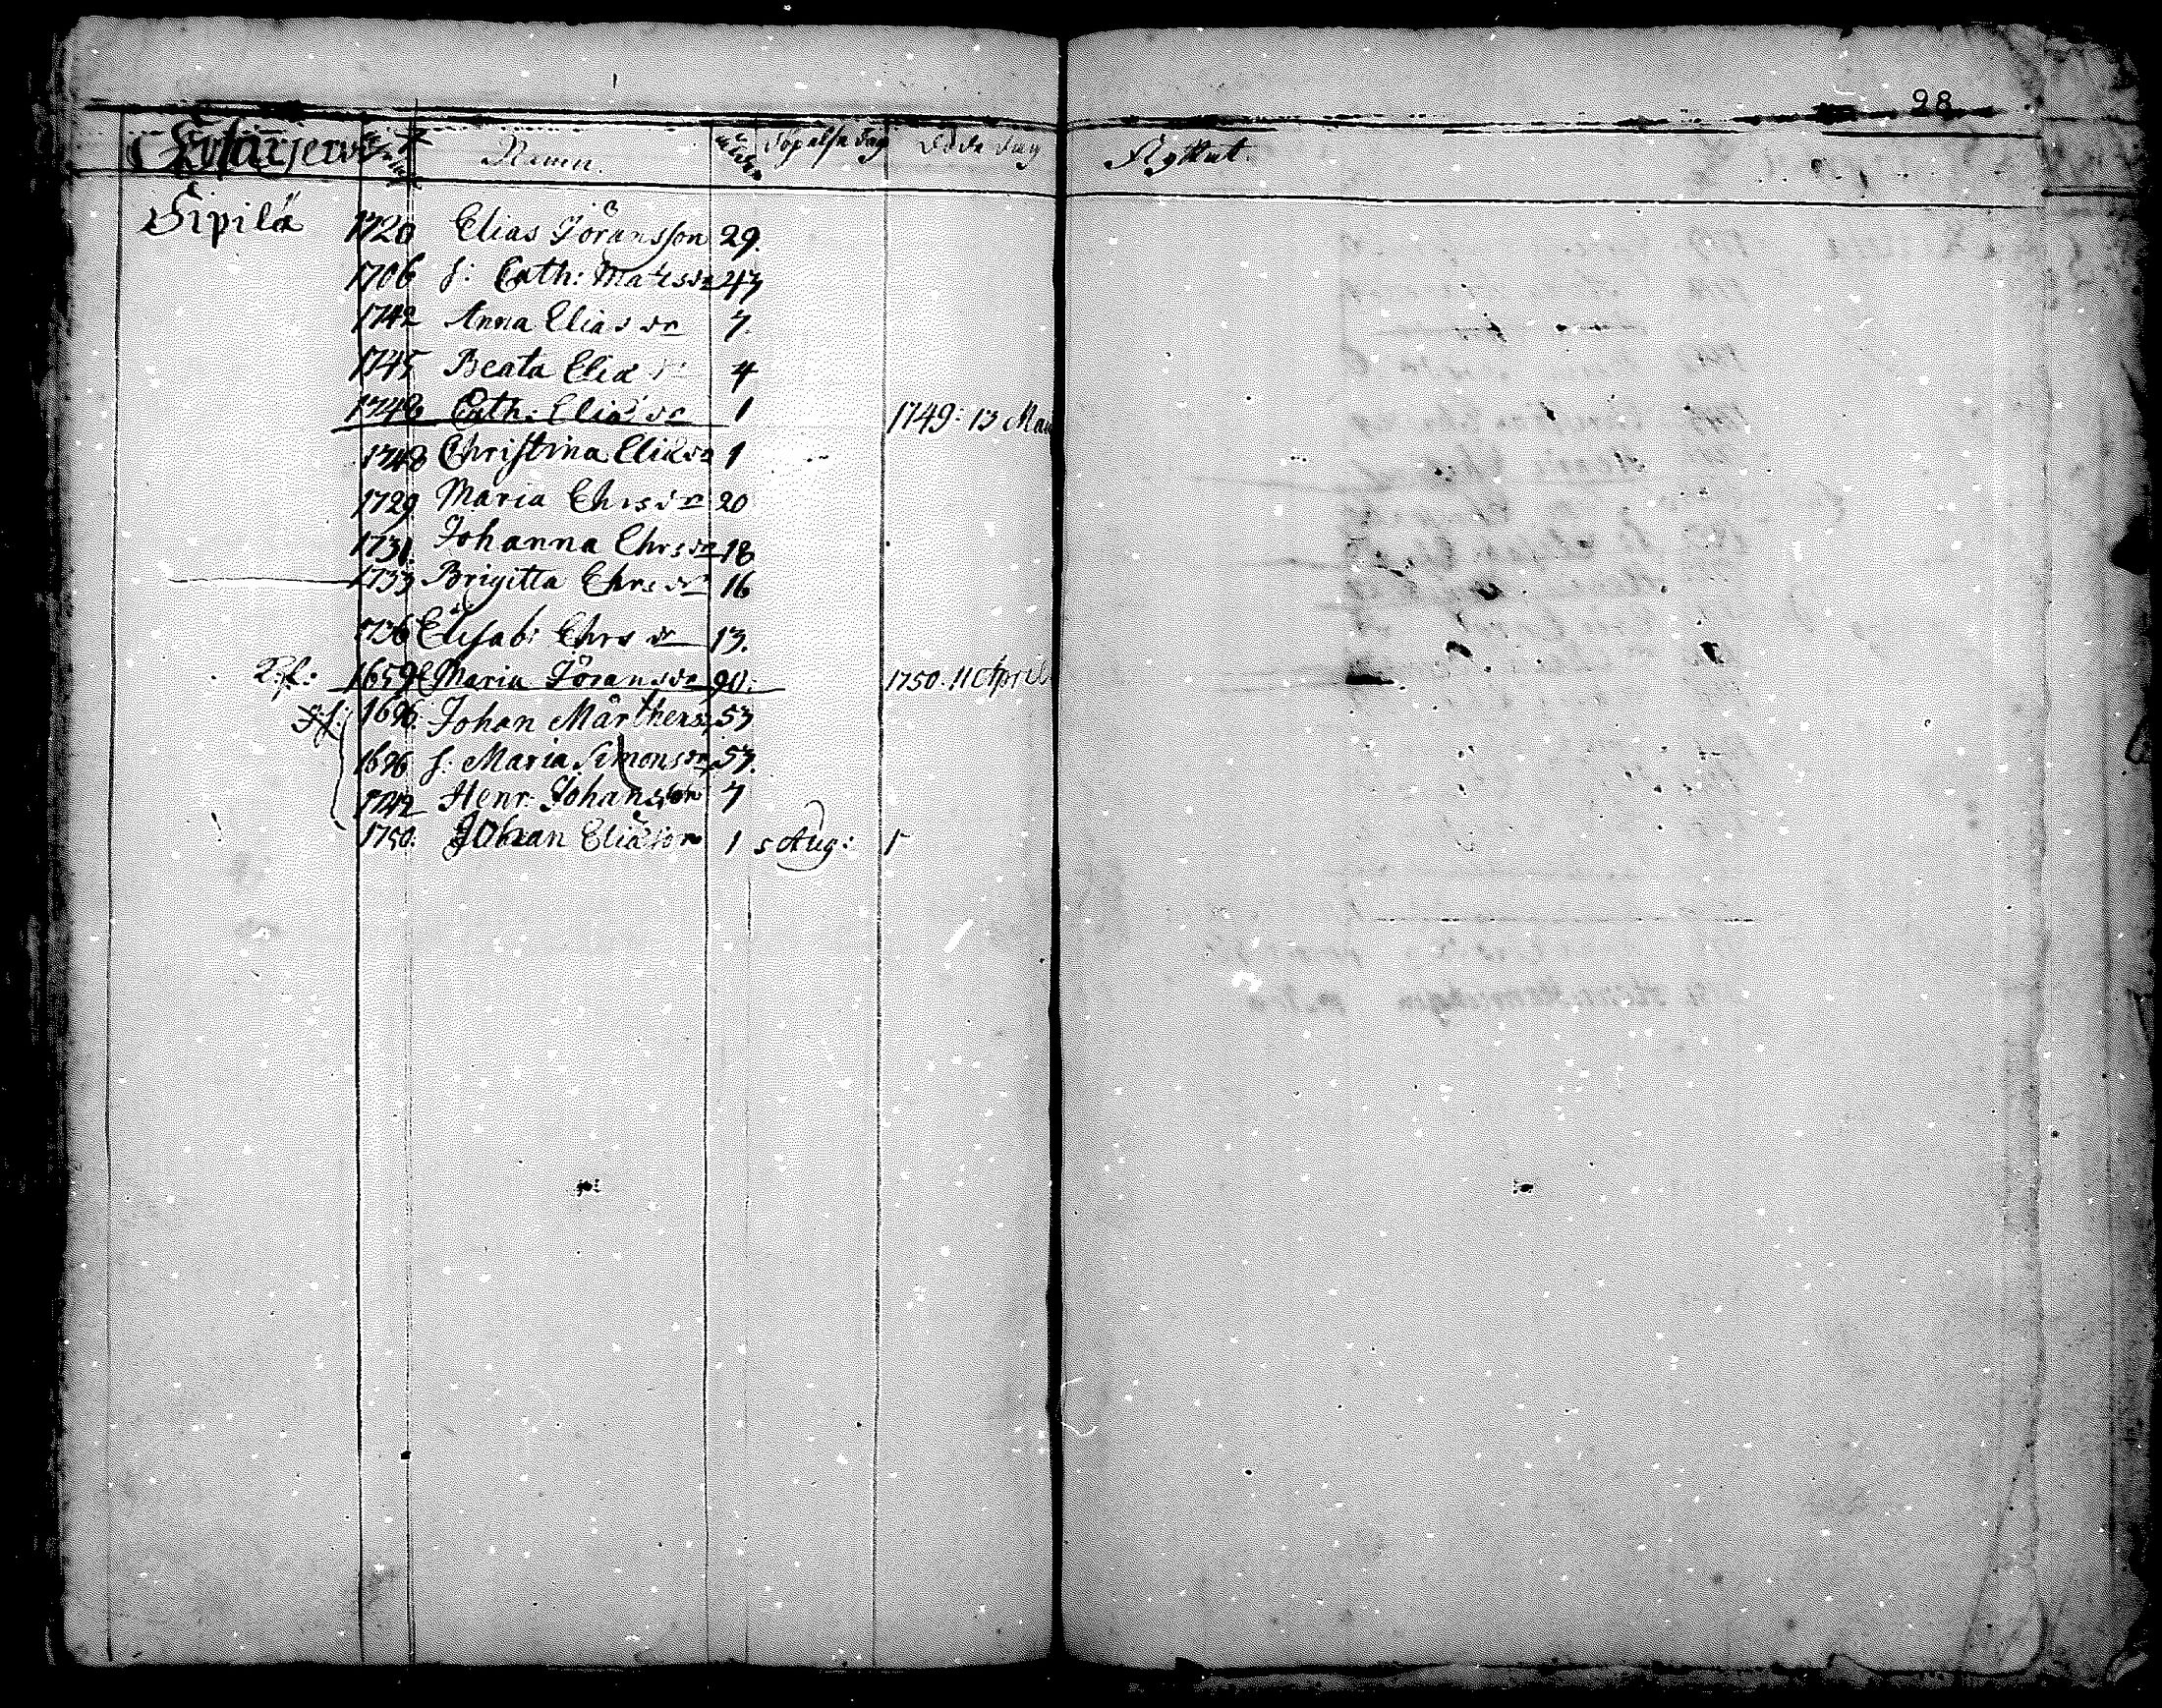 98
Namn. Födelse dag Döde dag Flyttat.
Sipilä 1720 Elias Jöransson 29.
1706 h: Cath: Matsdr 43
1742 Anna Eliasdr 7.
1745 Beata Elia 4
1748 Cath: Eliædr 1 1749: 13 Maii
1748 Christina Eliædr 1
1729 Maria Chrsdr 20
1731. Johanna Chrsdr 18
1733 Brigitta Chrsdr 16
1736 Elisab: Chrsdr 13.
1659 Maria Jöransdr 90. 1750. 11 April
1696 Johan Mårthens 53
1696 h: Maria Simonsdr 53.
1742 Henr. Johansson 7
1750. Johan Eliæson 1 5 Aug: